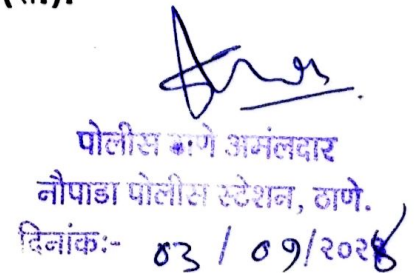 पोलीस ठाणे अमंलदार
नौपाडा पोलीस स्टेशन, ठाणे.
दिनांक:- ०३ / ०१/२०२४